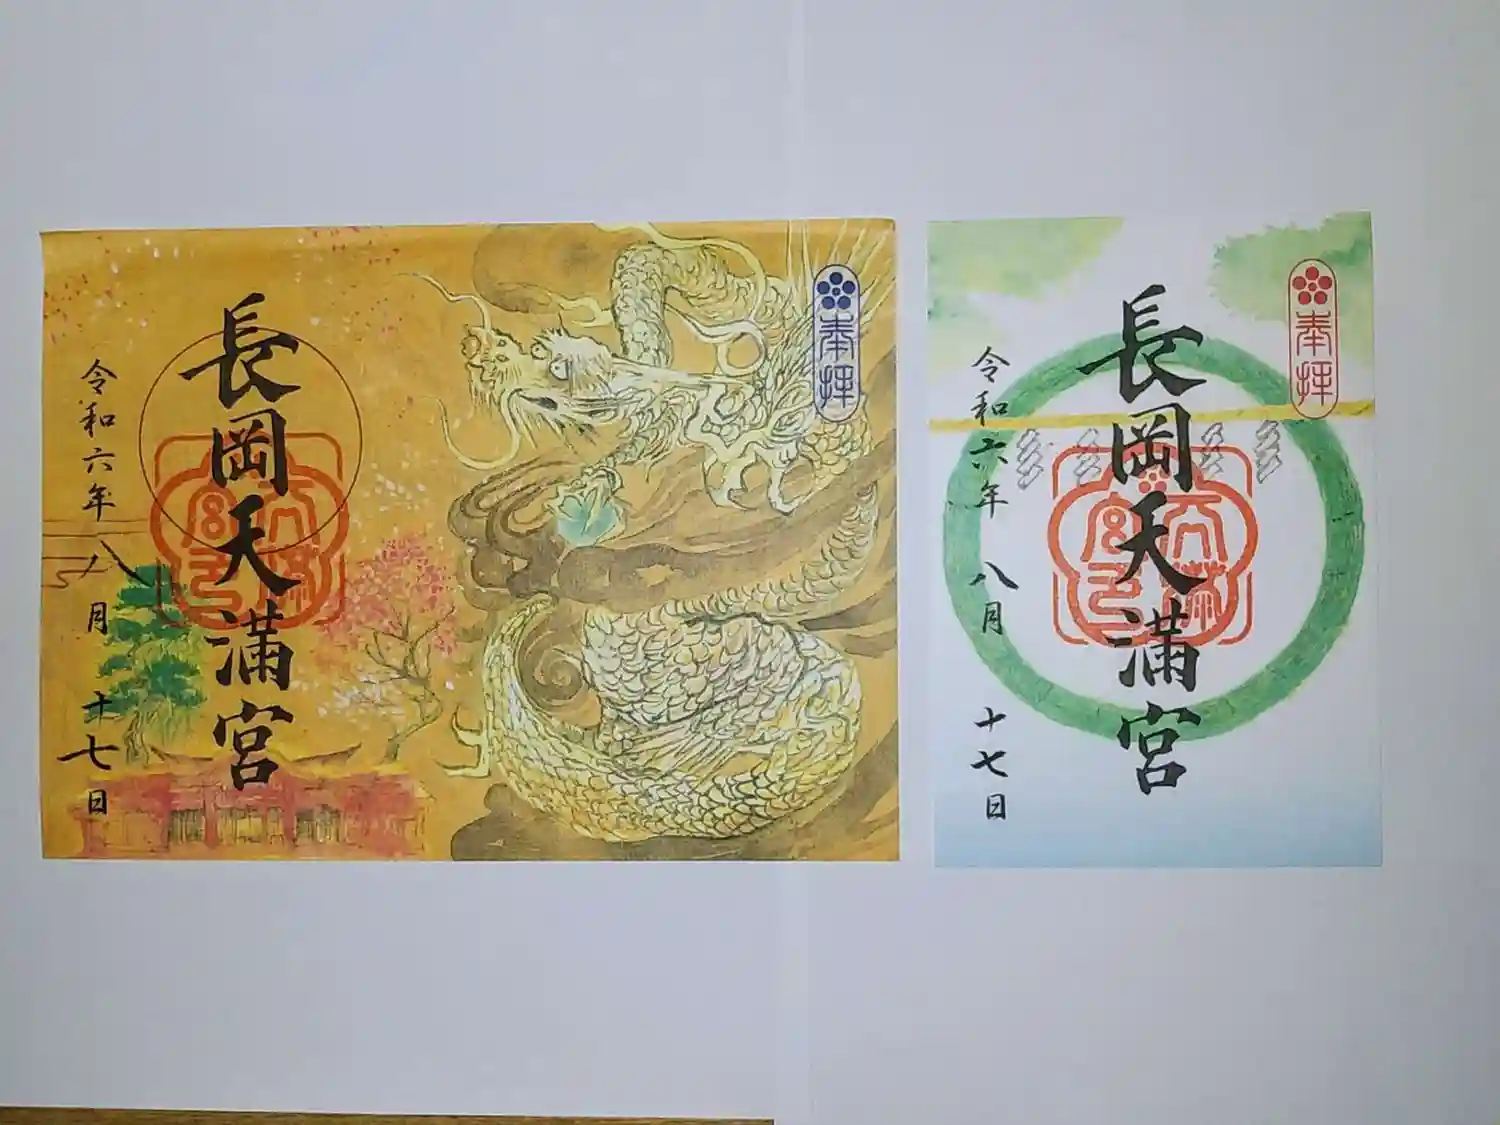 奉拝
長岡天満宮
令和六年八月十七日
奉拝
長岡天満宮
令和六年八月十七日